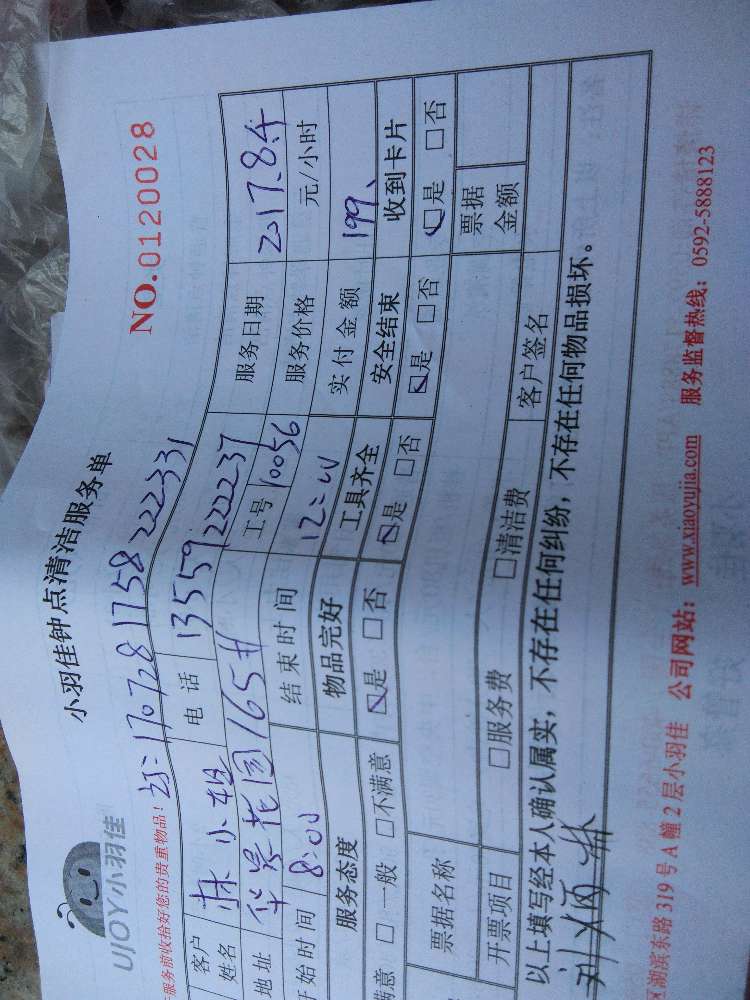 小羽佳钟点清洁服务单
UJOY小羽佳
NO.0120028
服务前收拾好您的贵重物品！
1707281758222331
客户姓名 林小姐 电话 13559222237 服务日期 2017.8.4
地址 华景花园165# 工号 10056 服务价格 元/小时
开始时间 8:00 结束时间 12:00 实付金额 199、
服务态度 物品完好 工具齐全 安全结束 收到卡片
满意 □一般 □不满意 □是 □否 □是 □否 □是 □否 □是 □否
票据名称 票据金额
开票项目 □服务费 □清洁费 客户签名
以上填写经本人确认属实，不存在任何纠纷，不存在任何物品损坏。
湖滨东路319号A幢2层小羽佳 公司网站：www.xiaoyujia.com 服务监督热线：0592-5888123